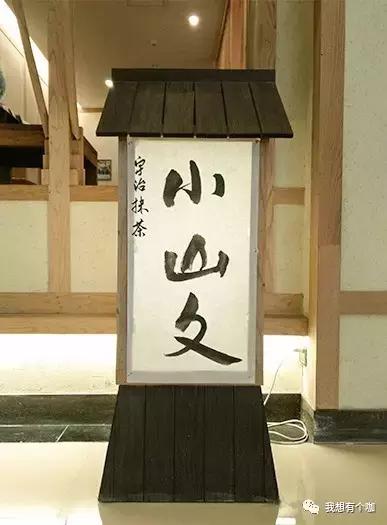 宇治抹茶
小山久
我想有个咖